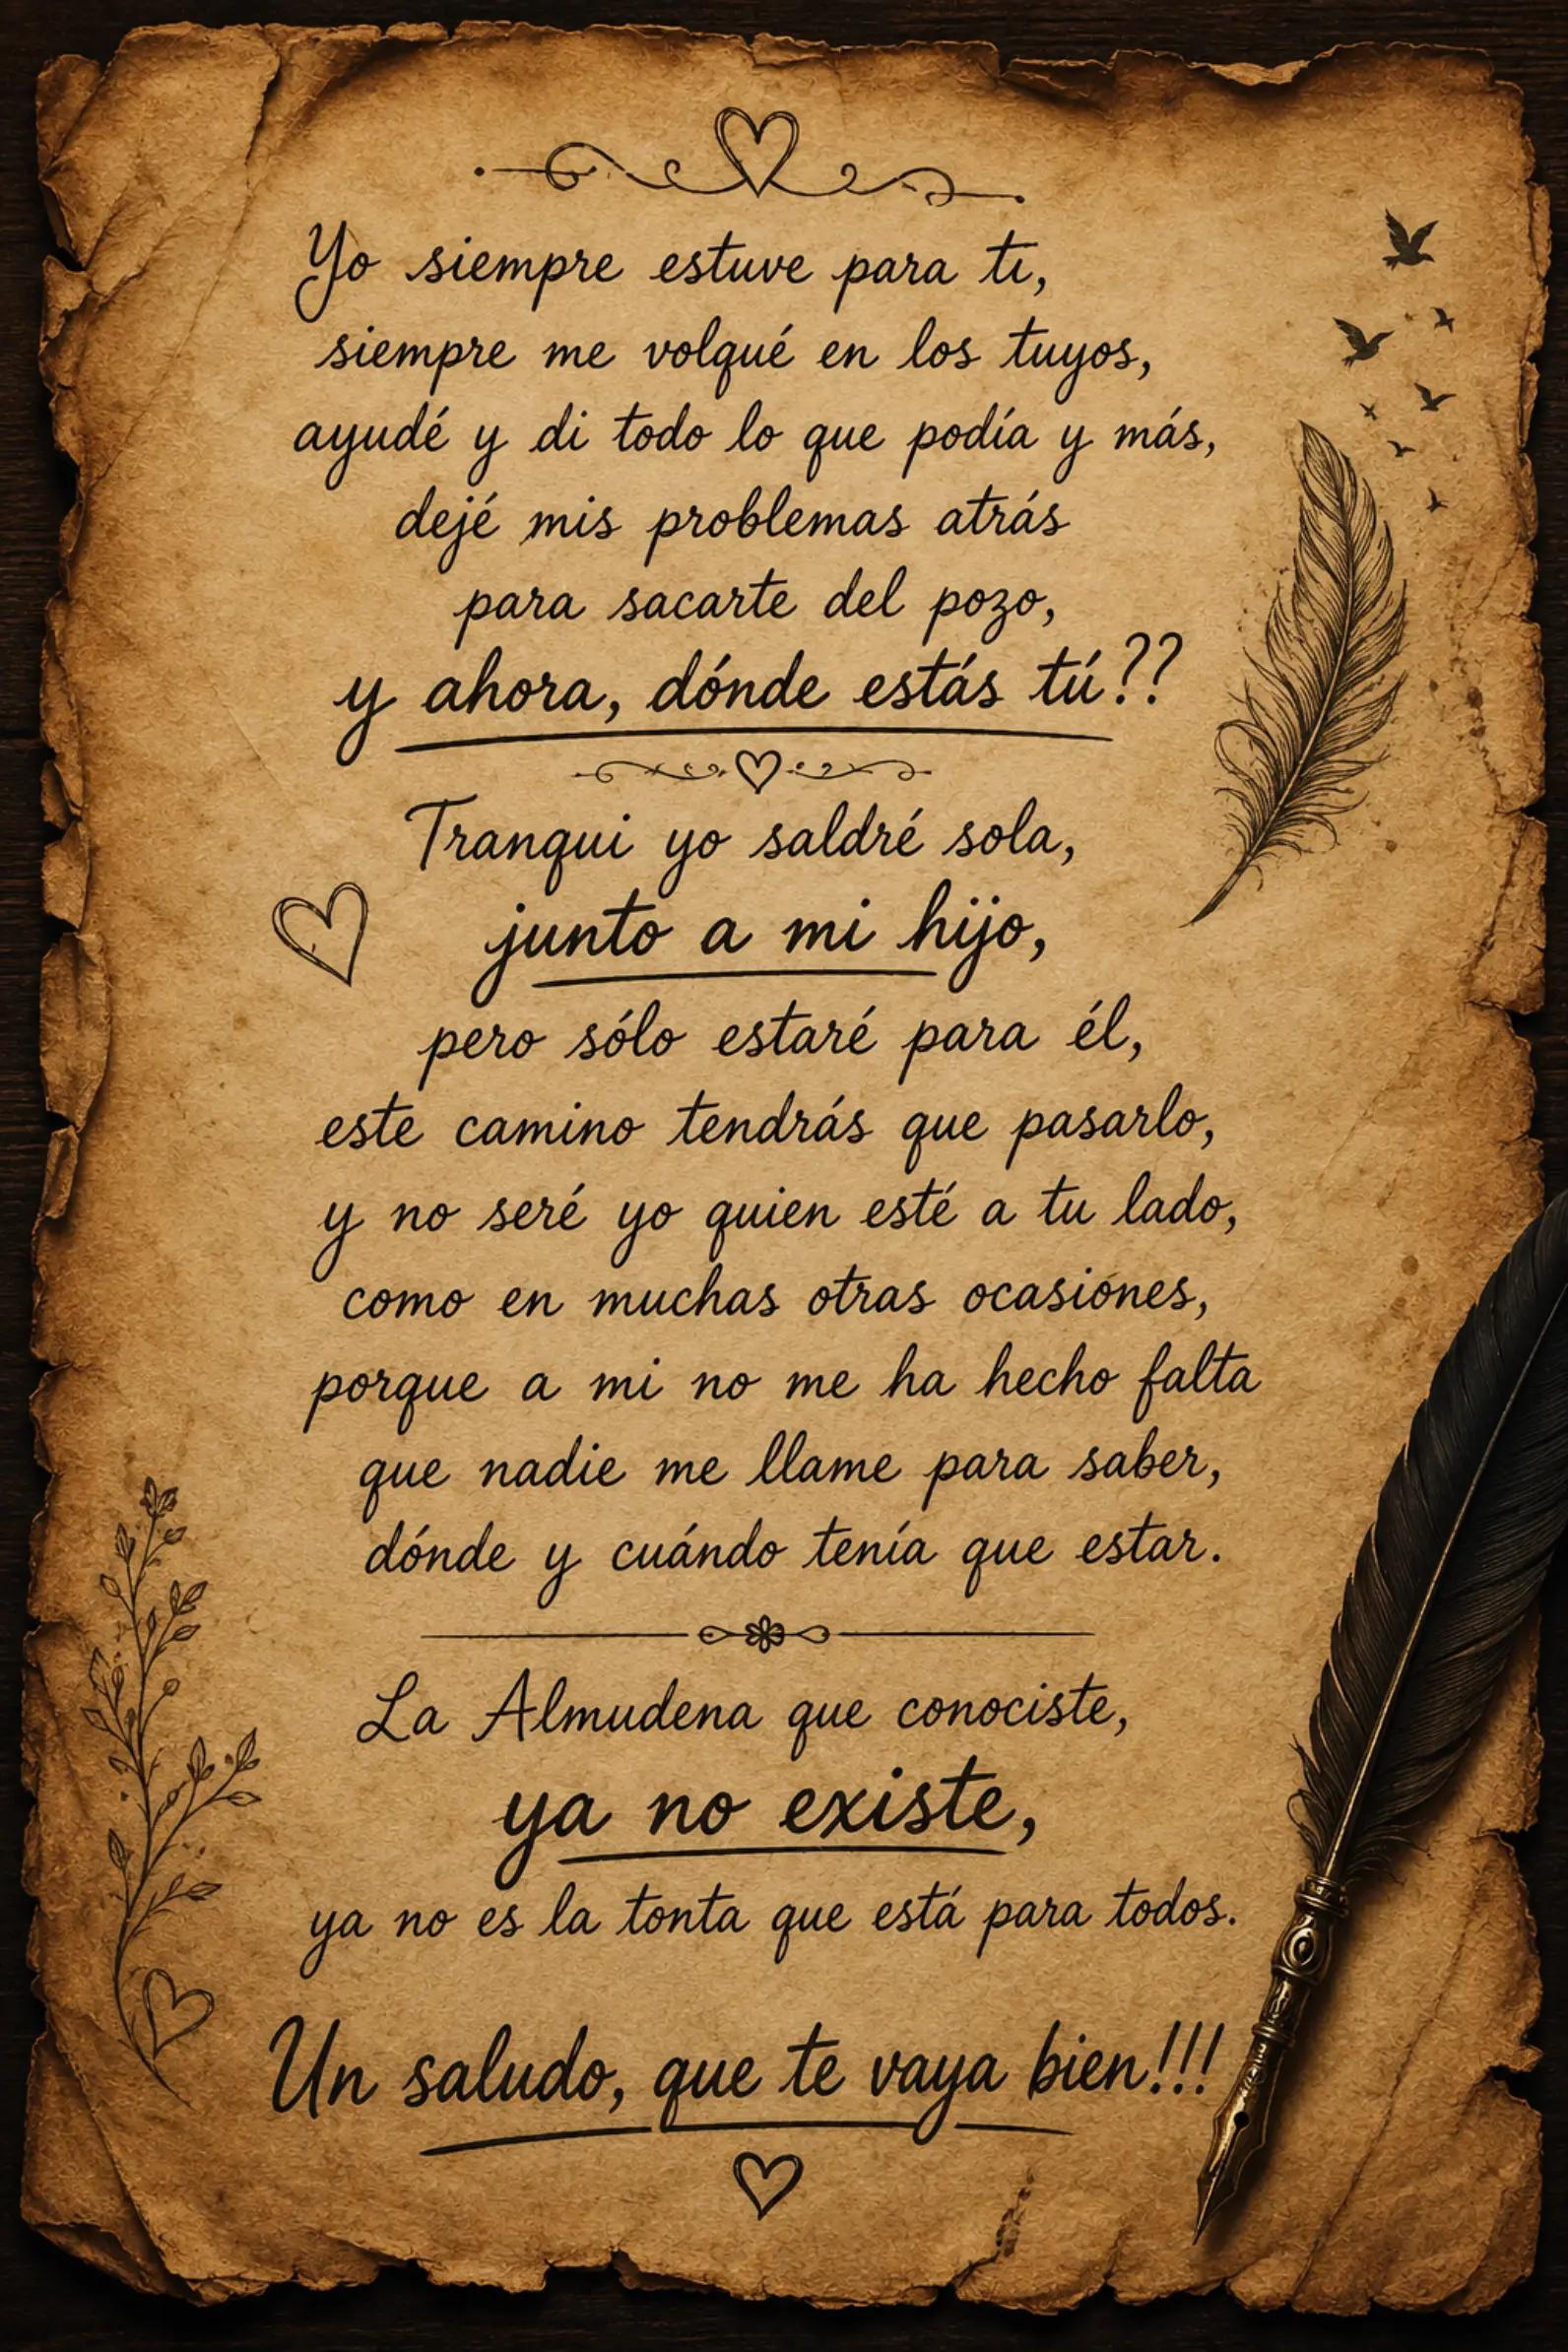 Yo siempre estuve para ti,
siempre me volqué en los tuyos,
ayudé y di todo lo que podía y más,
dejé mis problemas atrás
para sacarte del pozo,
y ahora, dónde estás tú??
Tranqui yo saldré sola,
junto a mi hijo,
pero sólo estaré para él,
este camino tendrás que pasarlo,
y no seré yo quien esté a tu lado,
como en muchas otras ocasiones,
porque a mi no me ha hecho falta
que nadie me llame para saber,
dónde y cuándo tenía que estar.
La Almudena que conociste,
ya no existe,
ya no es la tonta que está para todos.
Un saludo, que te vaya bien!!!